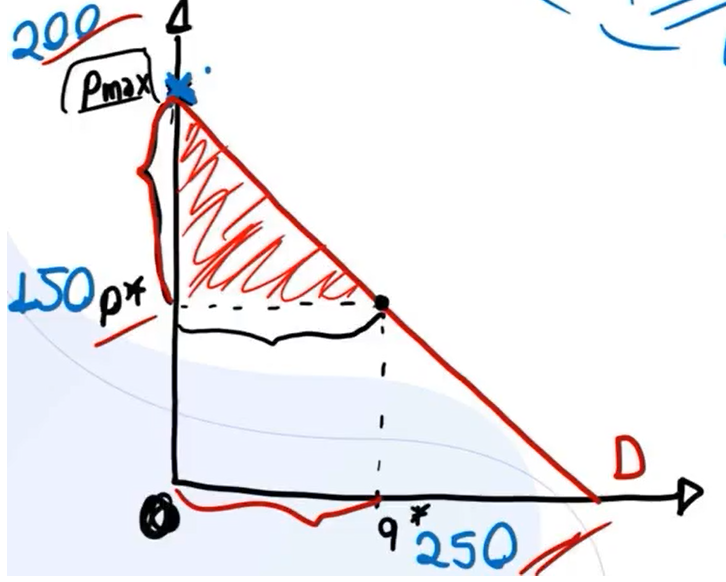 200
Pmax
150 p*
D
0
q* 250